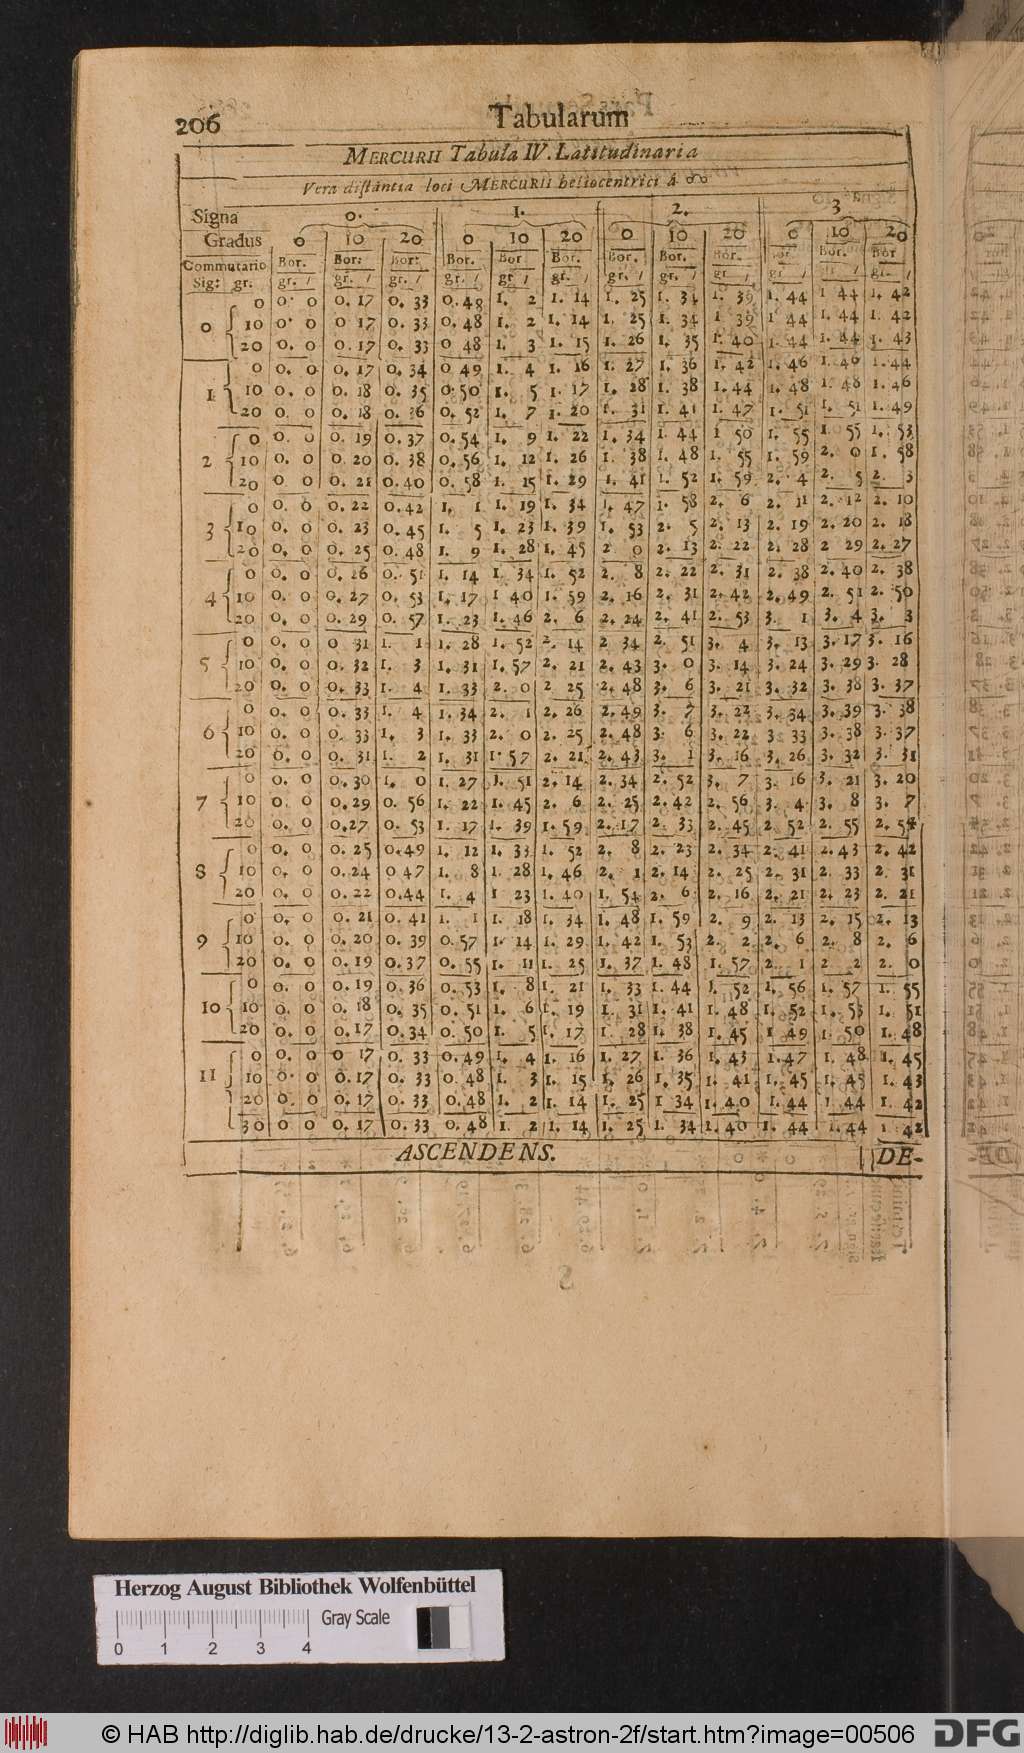 206 Tabularum
MERCURII Tabula IV. Latitudinaria
Vera distantia loci MERCURII heliocentrici à ☊
Signa 0. 1. 2. 3
Gradus 0 10 20 0 10 20 0 10 20 0 10 20
Commutatio Bor. Bor: Bor: Bor. Bor Bor. Bor. Bor. Bor. Bor. Bor. Bor
Sig: gr. gr. / gr. / gr. / gr. / gr. / gr. / gr. / gr. / gr / gr / gr / gr. /
0 0. 0 0. 17 0. 33 0. 48 1. 2 1. 14 1. 25 1. 34 1. 39 1. 44 1 44 1. 42
0 10 0. 0 0 17 0. 33 0. 48 1. 2 1. 14 1. 25 1. 34 1 39 1 44 1. 44 1. 42
20 0. 0 0. 17 0. 33 0 48 1. 3 1. 15 1. 26 1. 35 1. 40 1. 44 1. 44 1. 43
0 0. 0 0. 17 0. 34 0 49 1. 4 1. 16 1. 27 1. 36 1. 42 1. 46 1. 46 1. 44
1 10 0. 0 0. 18 0. 35 0. 50 1. 5 1. 17 1. 28 1. 38 1. 44 1. 48 1. 48 1. 46
20 0. 0 0. 18 0. 36 0. 52 1. 7 1. 20 1. 31 1. 41 1. 47 1. 51 1. 51 1. 49
0 0. 0 0. 19 0. 37 0. 54 1. 9 1. 22 1. 34 1. 44 1 50 1. 55 1. 55 1. 53
2 10 0. 0 0. 20 0. 38 0. 56 1. 12 1. 26 1. 38 1. 48 1. 55 1. 59 2. 0 1. 58
20 0. 0 0. 21 0. 40 0. 58 1. 15 1. 29 1. 41 1. 52 1. 59 2. 4 2. 5 2. 3
0 0. 0 0. 22 0. 42 1. 1 1. 19 1. 34 1. 47 1. 58 2. 6 2. 11 2. 12 2. 10
3 10 0. 0 0. 23 0. 45 1. 5 1. 23 1. 39 1. 53 2. 5 2. 13 2. 19 2. 20 2. 18
20 0. 0 0. 25 0. 48 1. 9 1. 28 1. 45 2 0 2. 13 2. 22 2. 28 2 29 2. 27
0 0. 0 0. 26 0. 51 1. 14 1. 34 1. 52 2. 8 2. 22 2. 31 2. 38 2. 40 2. 38
4 10 0. 0 0. 27 0. 53 1. 17 1 40 1. 59 2. 16 2. 31 2. 42 2. 49 2. 51 2. 50
20 0. 0 0. 29 0. 57 1. 23 1. 46 2. 6 2. 24 2. 41 2. 53 3. 1 3. 4 3. 3
0 0. 0 0 31 1. 1 1. 28 1. 52 2. 14 2 34 2. 51 3. 4 3. 13 3. 17 3. 16
5 10 0. 0 0. 32 1. 3 1. 31 1. 57 2. 21 2. 43 3. 0 3. 14 3. 24 3. 29 3. 28
20 0. 0 0. 33 1. 4 1. 33 2. 0 2 25 2. 48 3. 6 3. 21 3. 32 3. 38 3. 37
0 0. 0 0. 33 1. 4 1. 34 2. 1 2. 26 2. 49 3. 7 3. 22 3. 34 3. 39 3. 38
6 10 0. 0 0. 33 1. 3 1. 33 2. 0 2. 25 2. 48 3. 6 3. 22 3 33 3. 38 3. 37
20 0. 0 0. 31 1. 2 1. 31 1. 57 2. 21 2. 43 3. 1 3. 16 3. 26 3. 32 3. 31
0 0. 0 0. 30 1. 0 1. 27 1. 51 2. 14 2. 34 2. 52 3. 7 3. 16 3. 21 3. 20
7 10 0. 0 0. 29 0. 56 1. 22 1. 45 2. 6 2. 25 2. 42 2. 56 3. 4 3. 8 3. 7
20 0. 0 0. 27 0. 53 1. 17 1. 39 1. 59 2. 17 2. 33 2. 45 2. 52 2. 55 2. 54
0 0. 0 0. 25 0. 49 1. 12 1. 33 1. 52 2. 8 2. 23 2. 34 2. 41 2. 43 2. 42
8 10 0. 0 0. 24 0 47 1. 8 1. 28 1. 46 2. 1 2. 14 2. 25 2. 31 2. 33 2. 31
20 0. 0 0. 22 0. 44 1. 4 1 23 1. 40 1. 54 2. 6 2. 16 2. 21 2. 23 2. 21
0 0. 0 0. 21 0. 41 1. 1 1. 18 1. 34 1. 48 1. 59 2. 9 2. 13 2. 15 2. 13
9 10 0. 0 0. 20 0. 39 0. 57 1. 14 1. 29 1. 42 1. 53 2. 2 2. 6 2. 8 2. 6
20 0. 0 0. 19 0. 37 0. 55 1. 11 1. 25 1. 37 1. 48 1. 57 2. 1 2 2 2. 0
0 0. 0 0. 19 0. 36 0. 53 1. 8 1. 21 1. 33 1. 44 1. 52 1. 56 1. 57 1. 55
10 10 0. 0 0. 18 0. 35 0. 51 1. 6 1. 19 1. 31 1. 41 1. 48 1. 52 1. 53 1. 51
20 0. 0 0. 17 0. 34 0. 50 1. 5 1. 17 1. 28 1. 38 1. 45 1 49 1. 50 1. 48
0 0. 0 0 17 0. 33 0. 49 1. 4 1. 16 1. 27 1. 36 1. 43 1. 47 1. 48 1. 45
11 10 0. 0 0. 17 0. 33 0. 48 1. 3 1. 15 1. 26 1. 35 1. 41 1. 45 1. 45 1. 43
20 0. 0 0. 17 0. 33 0. 48 1. 2 1. 14 1. 25 1 34 1. 40 1. 44 1. 44 1. 42
30 0 0 0. 17 0. 33 0. 48 1. 2 1. 14 1. 25 1. 34 1. 40 1. 44 1. 44 1. 42
ASCENDENS. DE-
Herzog August Bibliothek Wolfenbüttel
Gray Scale
0 1 2 3 4
© HAB http://diglib.hab.de/drucke/13-2-astron-2f/start.htm?image=00506 DFG